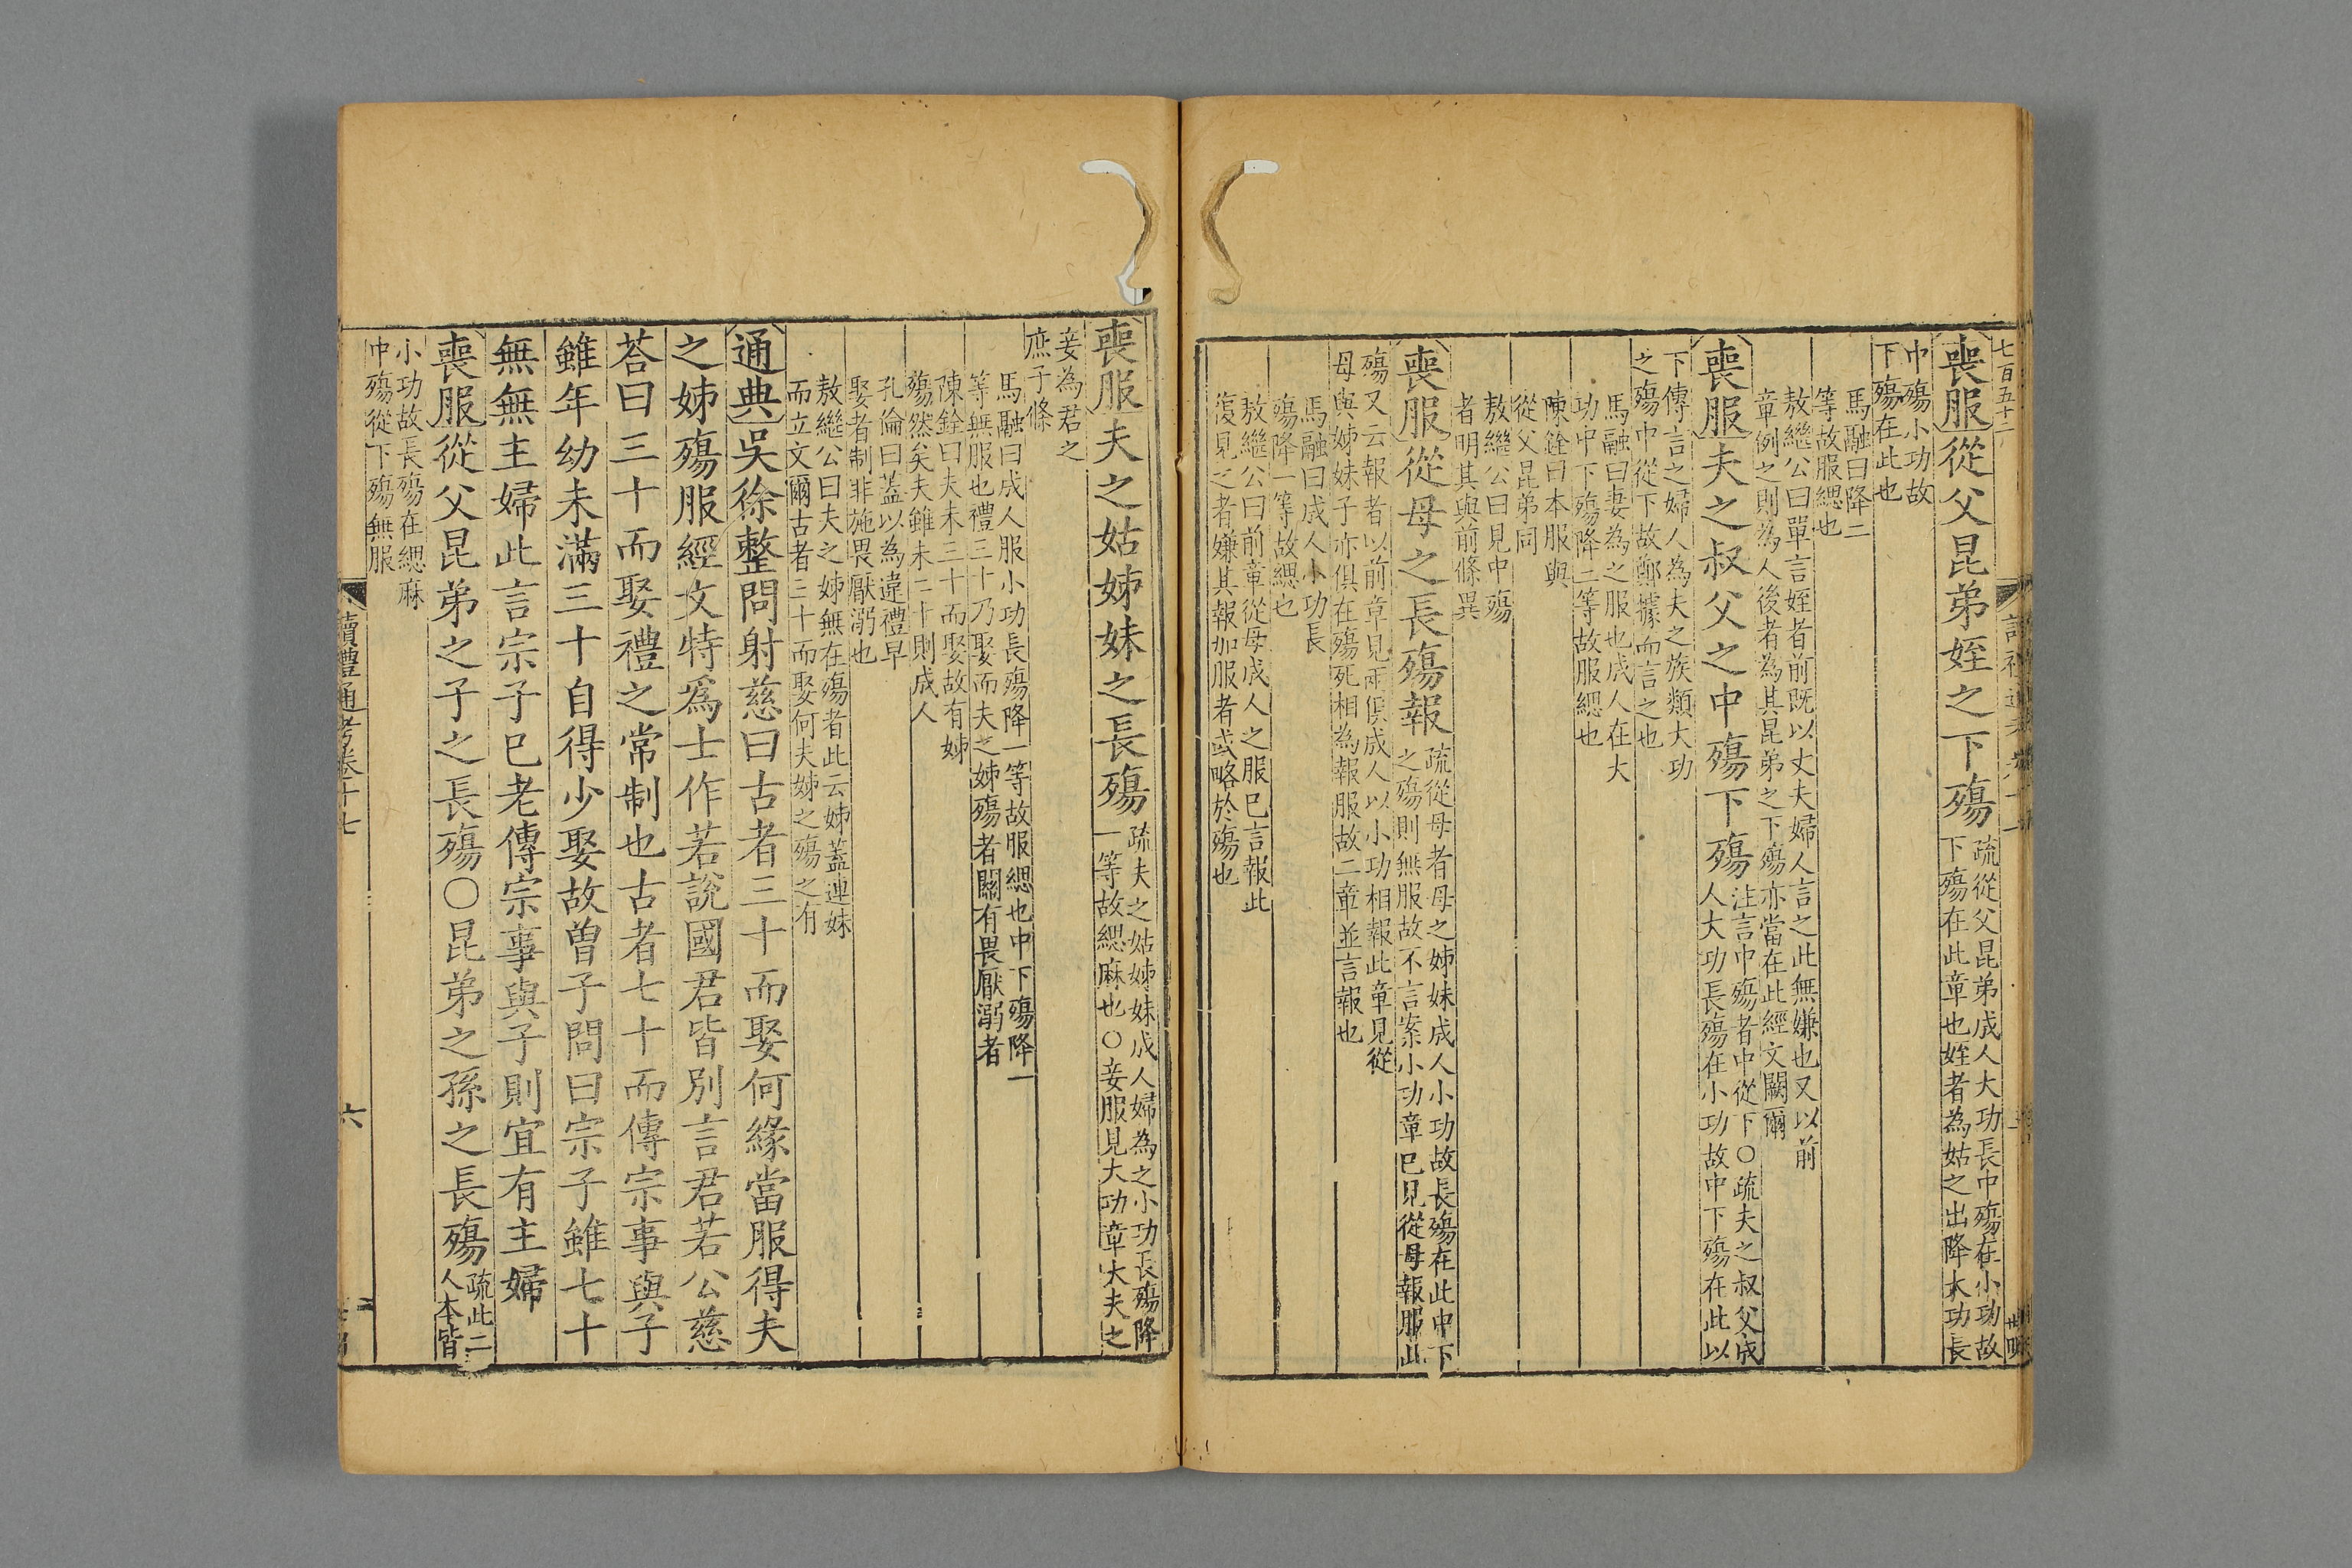 七百五十二
喪服從父昆弟姪之下殤
疏從父昆弟成人大功長中殤在小功故
下殤在此章也姪者為姑之出降大功長
中殤小功故
下殤在此也
馬融曰降二
等故服緦也
敖繼公曰單言姪者前既以丈夫婦人言之此無嫌也又以前
章例之則為人後者為其昆弟之下殤亦當在此經文闕爾
喪服夫之叔父之中殤下殤
注言中殤者中從下〇疏夫之叔父成
人大功長殤在小功故中下殤在此以
下傳言之婦人為夫之族類大功
之殤中從下故鄭據而言之也
馬融曰妻為之服也成人在大
功中下殤降二等故服緦也
陳銓曰本服與
從父昆弟同
敖繼公曰見中殤
者明其與前條異
喪服從母之長殤報
疏從母者母之姊妹成人小功故長殤在此中下
之殤則無服故不言案小功章已見從母報服此
殤又云報者以前章見兩俱成人以小功相報此章見從
母與姊妹子亦俱在殤死相為報服故二章並言報也
馬融曰成人小功長
殤降一等故緦也
敖繼公曰前章從母成人之服已言報此
復見之者嫌其報加服者或略於殤也
喪服夫之姑姊妹之長殤
疏夫之姑姊妹成人婦為之小功長殤降
一等故緦麻也〇妾服見大功章大夫之
妾為君之
庶子條
馬融曰成人服小功長殤降一等故服緦也中下殤降一
等無服也禮三十乃娶而夫之姊殤者關有畏厭溺者
陳銓曰夫未三十而娶故有姊
殤然矣夫雖未二十則成人
孔倫曰蓋以為違禮早
娶者制非施畏厭溺也
敖繼公曰夫之姊無在殤者此云姊蓋連妹
而立文爾古者三十而娶何夫姊之殤之有
通典吳徐整問射慈曰古者三十而娶何緣當服得夫
之姊殤服經文特爲士作若說國君皆別言君若公慈
荅曰三十而娶禮之常制也古者七十而傳宗事與子
雖年幼未滿三十自得少娶故曾子問曰宗子雖七十
無無主婦此言宗子已老傳宗事與子則宜有主婦
喪服從父昆弟之子之長殤〇昆弟之孫之長殤
疏此二
人本皆
小功故長殤在緦麻
中殤從下殤無服
讀禮通考卷十七
六